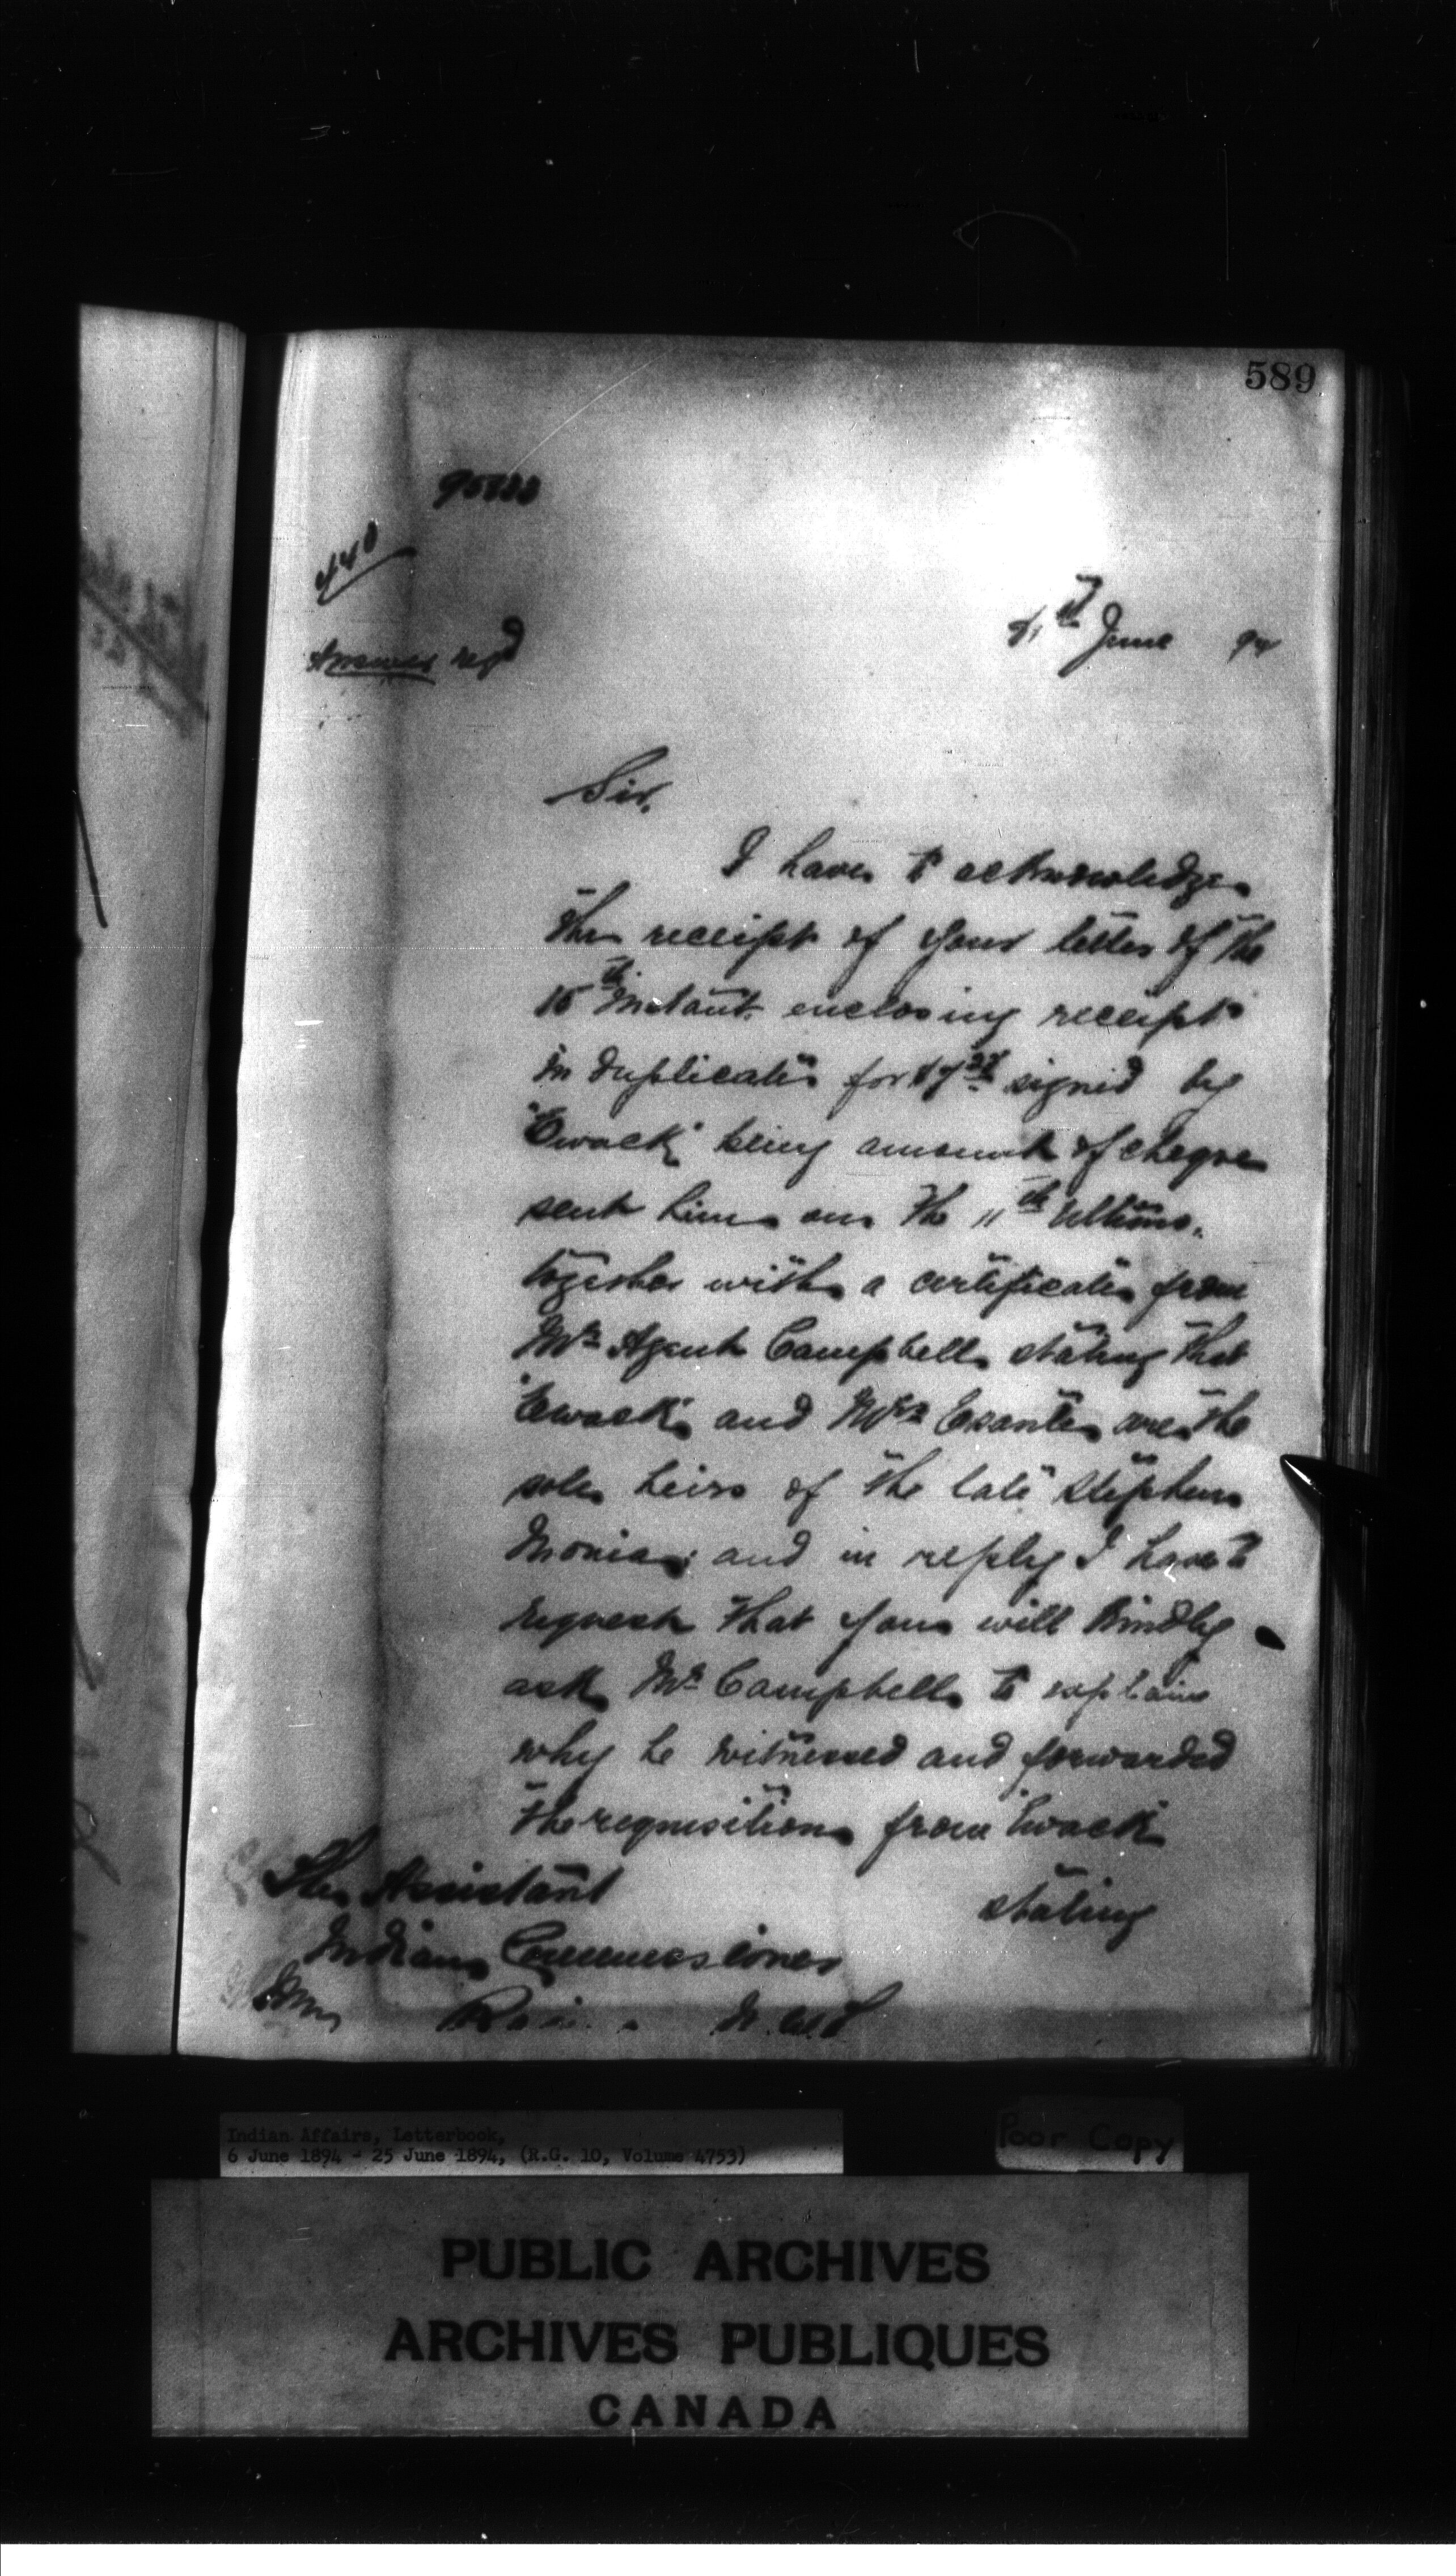 589
440
Answer reqd
21st June 94
Sir,
I have to acknowledge
the receipt of your letter of the
15th instant enclosing receipt
in duplicate for signed by
"Ewack" being amount of cheque
sent him on the 11th Ultimo,
together with a certificate from
Mr Agent Campbell stating that
"Ewack" and Mrs are the
sole heirs of the late Stephen
and in reply I have to
request that you will kindly
ask Mr Campbell to explain
why he witnessed and forwarded
the requisition from "Ewack"
stating
The Assistant
Indian Commissioner
N.W.T
Indian Affairs, Letterbook,
6 June 1894 - 25 June 1894, (R.G. 10, Volume 4753)
Poor Copy
PUBLIC ARCHIVES
ARCHIVES PUBLIQUES
CANADA